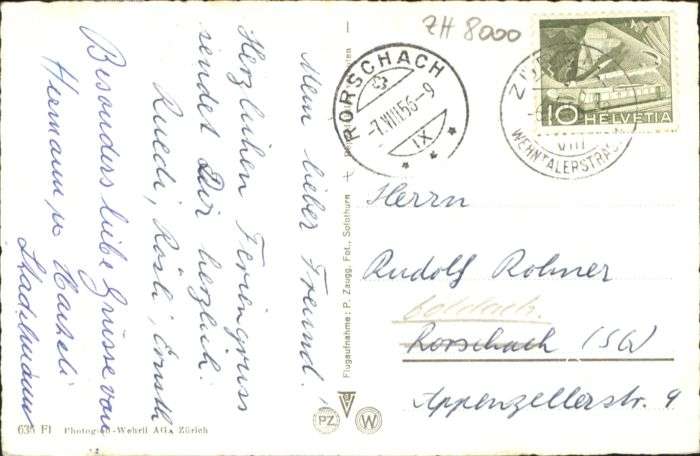 ZH 8000
HELVETIA
10
ZÜR
VIII
WEHNTALERSTRASSE
RORSCHACH
-7.VIII.56-9
IX
Mein lieber Freund.
Herzlichen Feriengruss
sendet Dir herzlich.
Ruedi, Rösli, Ernstli
Besonders liebe Grüsse von
Hermann, u. Hasheli
Stadelmann
Herrn
Rudolf Rohner
Goldach.
Rorschach (SG)
Appenzellerstr. 9
Flugaufnahme: P. Zaugg, Fot., Solothurn
PZ
W
635 Fl Photogrso-Wehrli AG. Zürich